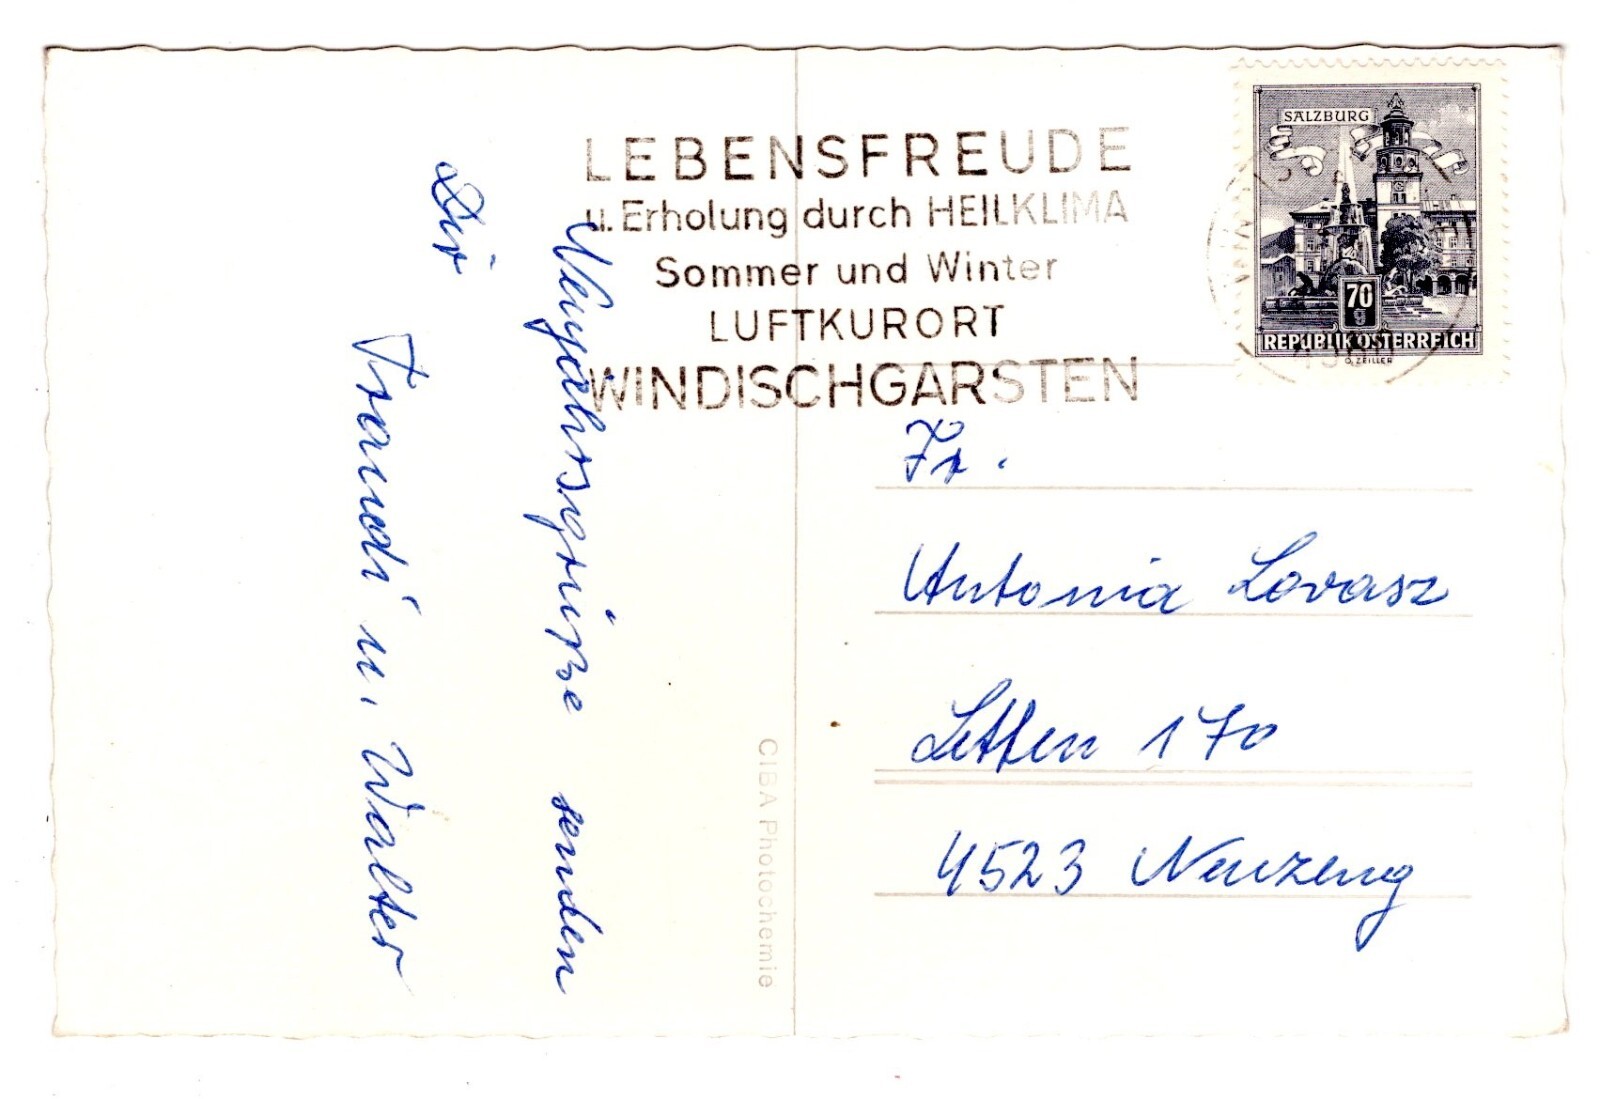 LEBENSFREUDE
u. Erholung durch HEILKLIMA
Sommer und Winter
LUFTKURORT
WINDISCHGARSTEN
SALZBURG
70
g
REPUBLIK ÖSTERREICH
O. ZEILLER
Neujahrsgrüße senden
Dir
Traudi u. Walter
CIBA Photochemie
Fr.
Antonia Lovasz
Letten 170
4523 Neuzeug